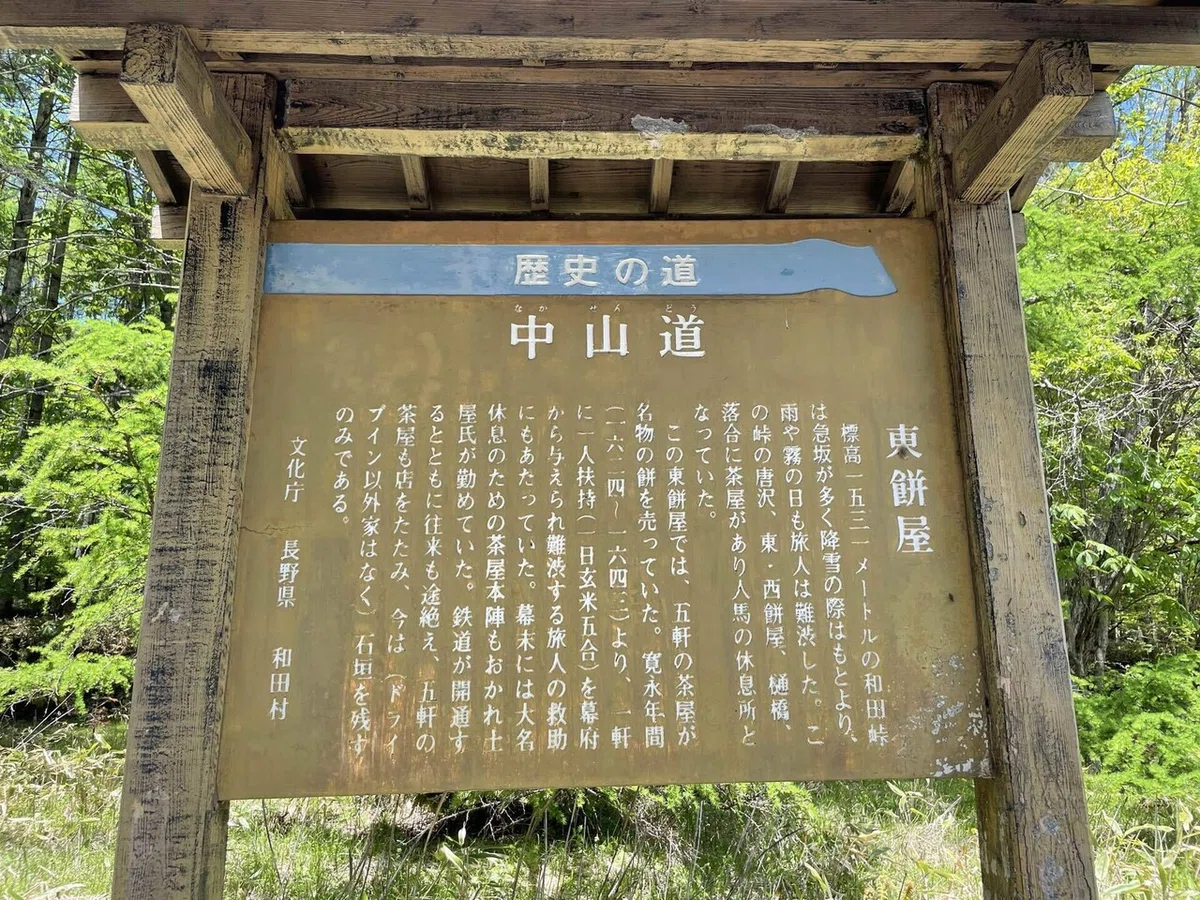 歴史の道
なか せん どう
中山道
東餅屋
標高一五三一メートルの和田峠
は急坂が多く降雪の際はもとより、
雨や霧の日も旅人は難渋した。こ
の峠の唐沢、東・西餅屋、樋橋、
落合に茶屋があり人馬の休息所と
なっていた。
この東餅屋では、五軒の茶屋が
名物の餅を売っていた。寛永年間
(一六二四～一六四三)より、一軒
に一人扶持(一日玄米五合)を幕府
から与えられ難渋する旅人の救助
にもあたっていた。幕末には大名
休息のための茶屋本陣もおかれ土
屋氏が勤めていた。鉄道が開通す
るとともに往来も途絶え、五軒の
茶屋も店をたたみ、今は(ドライ
ブイン以外家はなく)石垣を残す
のみである。
文化庁 長野県 和田村